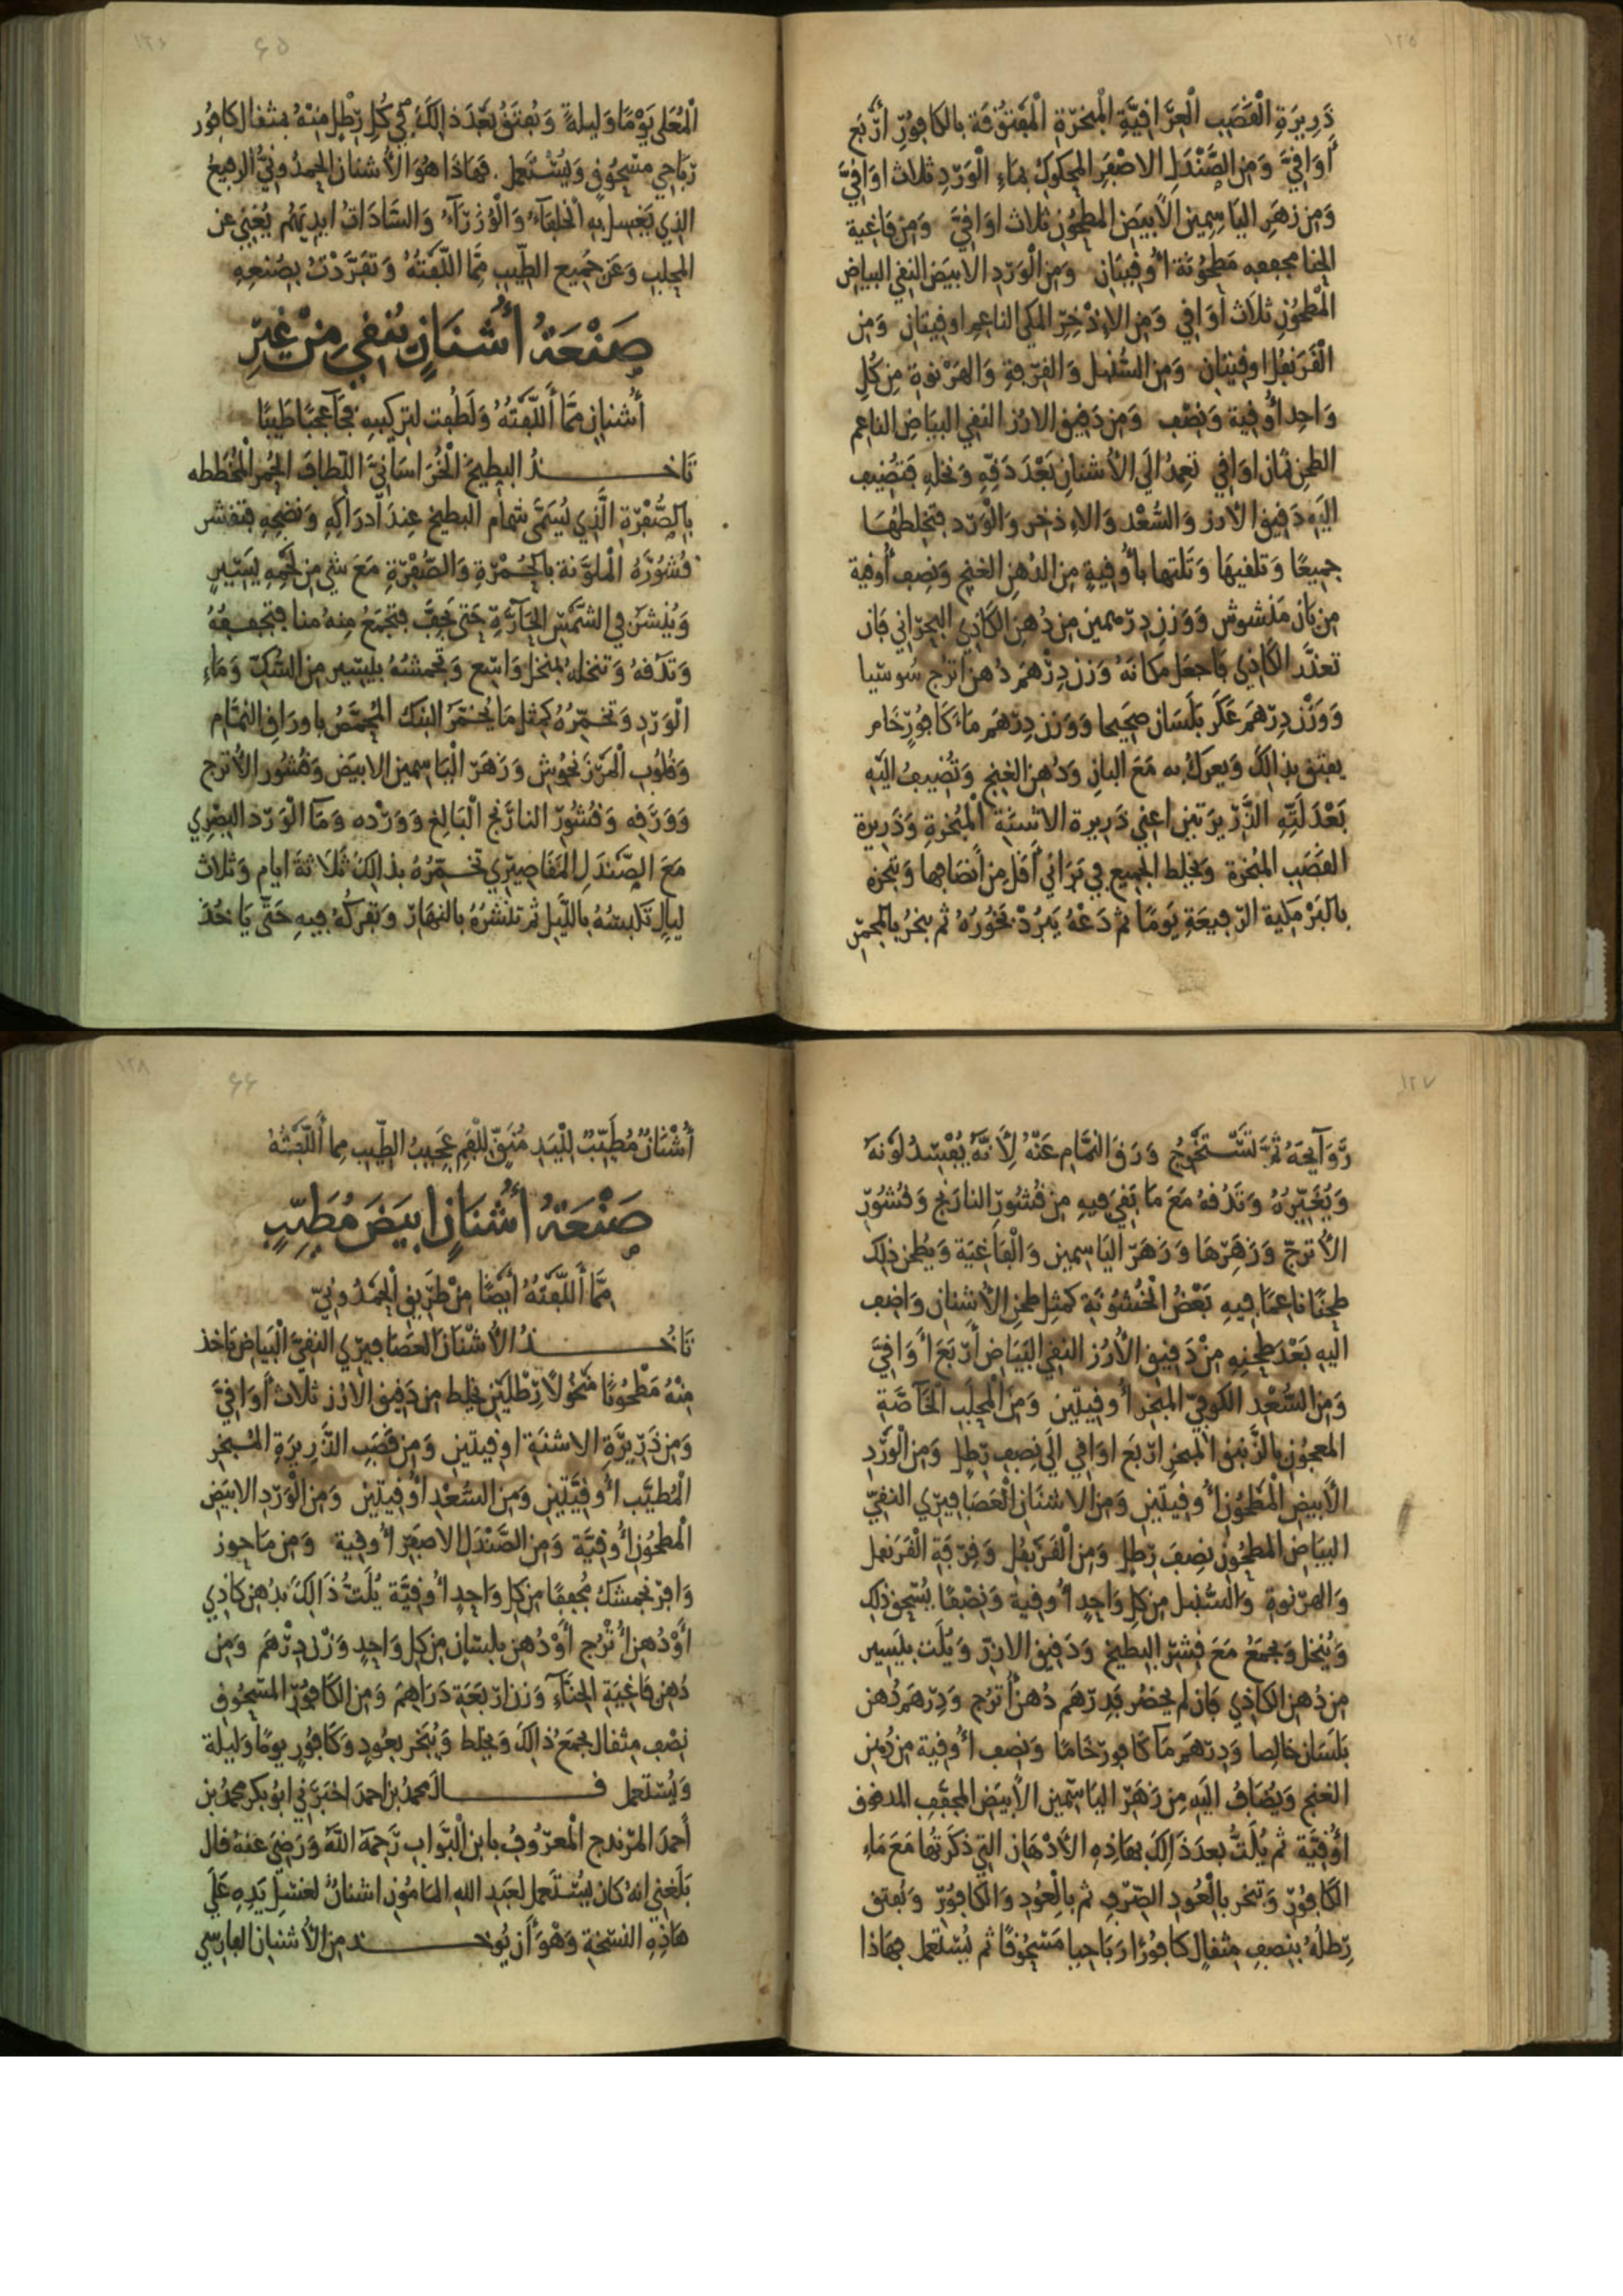 ١٢٥
ذَرِيرَةِ الْقَصَبِ الْعِرَاقِيَّةِ الْمبَخرّةِ الْمَفتُوقَة بالكَافُورِ ارْبَع
أَوَاقِيّ وَمِن الصَّنْدَلِ الاصْفَرِ المحكوك بمَاءِ الْوَرْدِ ثلاث اوَاقِيّ
وَمِن زهَرِ اليَاسِمِين الأَبيَض المطحُون ثلاث اوَاقِيّ وَمِن فَاغِية
الحنا مجففه مَطحُونَة اُوقِيتَانِ وَمِن الْوَرْدِ الابيَض النقي البياض
الْمطحُونِ ثلَاث أَوَاقِي وَمِن الإذْخِرِ المكي الناعِمِ اوقِيتَانِ وَمِن
الْقَرَنفُلِ اوقِيتَان وَمِن السُّنبل وَالقِرْفةِ وَالهَرْنوة مِن كُلِ
وَاحِدٍ اُوقِية وَنِصْف وَمِن دَقيق الارُز النقي البيَاضِ الناعِم
الطحن ثمَان اوَاقي تعمِدُ الَي الأشنان بَعْدَ دَقّهِ وَنخلهِ فتضِيف
اليَهِ دَقيق الارز وَالسُّعْد وَالاِذخر وَالْوَرْد فتخلطهُمَا
جميعًا وَتلقيهَا وَتَلتها بأُوقيةٍ مِن الدُهن الغنج وَنِصف أُوقية
مِن بَان مَنشوش وَوَزن دِرْهمين مِن دُهن الكَاذِي البحرَاني فَان
تعذَّر الكَاذِي فَاجعَل مكانَهُ وَزن دِرْهَم دُهن اترج سُوسيا
وَوَزْن دِرْهَم عَكَر بَلَسَان صحِيحا وَوَزن دِرْهَم مَاءَ كَافُورٍ خَام
يفتق بذالكَ وَيعرك به مَعَ البانِ وَدُهن الغنج وَتُضِيفُ اليَهِ
بَعْدَ لَتِّهِ الذَّرِيرَتين اعني ذَرِيرة الاشنَة الْمُبخرةِ وَذَرِيرَة
القَصَب المبخرة وَيخلط الجميع في بَرَاني أَقَل مِن أَنصَافِها وَتبخره
بالبَرْمَكية الرّفِيعَةِ يَومًا ثم دَعْهُ يَبرُدْ بَخُورُهُ ثم يبخرُ بالمجمر
١٢٦
٦٥
الْمُعَلي يَوْمًا وَليلةً وَيُفتَقُ بَعْدَ ذالكَ في كُل رطْلٍ مِنْهُ بمثقال كافُور
رَبَاحي مسْحُوقٍ وَيُسْتعمل فهَاذَا هُوَ الأُشنان الحمدُونيُّ الرفيعُ
الذي يَغسِلُ بهِ الخلفَاءُ وَالوُزرَآءُ وَالسَّادَاتُ ايدِيَهُم يُغني عن
المحلب وَعَن جميع الطِّيب ممَّا اللّفتُهُ وَتَفَرَّدْتُ بِصُنعِهِ
صَنْعَةُ أُشنَانٍ يُنقي مِنْ غيرِ
أُشنانٍ ممَّا أَللَّفتُهُ وَلَطُفت لتركيبهِ فجَآ عجَبًا طَيبًا
تَاخـــــذُ البطيخ الخُرَاسَانيَّ اللّطاف الحُمر المُخططه
بالصُّفْرَةِ الَّذِي يُسَمَّى شمام البطيخ عِندَ ادرَاكِهِ وَنضجِهِ فتقشر
قُشُوْرَهُ الْملوَّنة بالحُمْرَةِ وَالصُّفْرَةِ مَعَ شي مِن لَحْمِهِ يَسِيرٍ
وَيُنشَرُ في الشَّمْسِ الحَآرَّةِ حَتى يجفَّ فتجْمَعُ مِنهُ منا فتجففهُ
وَتدقهُ وَتنخلهُ بمنخل وَاسِع وَتجمشهُ بيَسِيرٍ مِن السُّكّ وَمَاءِ
الْوَرْدِ وَتخمِّرُهُ كمثل مَا يُخمَّرَ البنك المحمَّصُ باورَاقِ النمَّام
وَقُلُوب الْمَرْزَنجُوش وَزَهَر الْيَاسِمين الابيَض وَقُشُور الأُترج
وَوَرَقه وَقُشُورْ النارَنج الْبَالِغ وَوَرْده وَمَا الْوَرْد البصْرِي
مَعَ الصَّندَلِ المقَاصِيرِي تخـمِّرُهُ بذالكَ ثلَاثةَ ايام وَثلاث
ليالٍ تَلبسهُ بالليل ثم تنشُرُهُ بالنهَارْ وَتفركُهُ فيهِ حَتَّى يَاخُذَ
١٢٧
رَّوَآيحَهُ ثُمَّ تَسْتخرِجُ وَرَقَ النمَّام عَنْهُ لأَنَّهُ يُفْسِدُ لَونَهُ
وَيُغَيِّرُهُ وَتَدُقهُ مَعَ مَا بَقيَ فِيهِ مِن قُشُورِ النارَنج وَقُشُورِ
الأترجّ وَزَهَرْهَا وَزَهَرْ اليَاسمين وَالْفَاغِيَة وَيطحن ذلِك
طحنًا ناعمًا فِيهِ بَعْضُ الخُشُونَة كمثِل طحنِ الأُشنانِ وَاضِف
اليهِ بَعْدَ طحنِهِ مِنْ دَقيق الأَرُز النقي البَيَاض أَرْبَعَ أَوَاقيَّ
وَمِنَ السُّعْدِ الكوفيّ المبخر أُوقيتين وَمِن المحلَب الخَاصَّةِ
المعجُونِ بالزَّنبق المبخرِ ارْبَع اوَاقي الَي نِصف رَطل وَمِن الْوَرْدِ
الأَبيض الْمَطحُونِ أُوقيتين وَمِن الاشنَانِ الْعَصَافِيرْي النقيّ
البيَاض المطحُون نِصفَ رَطل وَمِن الْقَرنفُل وَقِرْفَةِ الْقَرَنفل
وَالهرْنوة وَالسُّنبل مِن كل وَاحِدٍ اُوقية وَنصْفا يُسْحق ذلك
وَيُنخل وَيجمَعُ مَعَ قِشرِ البطيخ وَدَقيق الارز وَيُلَت بيَسِير
مِن دُهن الكاذِي فان لم يحضُر فدِرْهَم دُهن أُترج وَدِرْهَم دُهن
بَلَسَان خالِصا وَدِرْهَم مَا كافور خَامًا وَنِصف اُوقية مِن دُهن
الغنج وَيُضَافُ اليَهِ مِن زَهَرْ اليَاسِمين الأَبيَض المجفَّفِ المدقوق
اُوقيَّة ثم يُلَتُّ بعدَ ذَالِكَ بهَاذِهِ الأَدْهَانِ التي ذَكَرْتُهَا مَعَ مَاءِ
الكَافُورْ وَتبخر بالْعُودِ الصّرْف ثم بالْعُودِ وَالكَافُورْ وَيُفتق
رَطلُهُ بنِصفِ مِثقالٍ كافُورًا رَبَاحيا مَسْحُوقًا ثم يُسْتعمل فهَاذا
١٢٨
٦٦
أُشْنَانٌ مُطَيِّبٌ لِلْيَدِ مُنَقّ لِلْفَمِ عَجِيبُ الطِّيب مما أَللَّفتُهُ
صَنْعَةُ أُشنَانٍ ابيَضَ مُطَيِّبٍ
ممَّا أَللَّفتُهُ أَيضًا مِنْ طَرِيق الْحمدُونيّ
تَاخُـــــذُ الأُشْنَانَ العَصَافِيرْي النقيَّ الْبيَاض فاخذ
مِنْهُ مَطْحُونًا مَنخُولاً رَطْلَيْن يخلط مِن دَقيق الارُز ثلاث أَوَاقيَّ
وَمِن ذَرِيرَةِ الاشنَة اوقيتين وَمِن قصَب الذَّرِيرَةِ المبخر
الْمُطَيَّب اُوقيَّتين وَمِن السُّعْدِ اُوقيتين وَمِن الْوَرْدِ الابيَض
الْمَطحُون اُوقيَّة وَمِن الصَّنْدَلِ الاصفَر اُوقية وَمِن مَاجوز
وَافرَنجمشك مُجففًا مِن كل وَاحِدٍ اُوقيَّة يُلَتُّ ذَالكَ بدُهن كاذي
أَوْ دُهن أُتْرُج أَوْ دُهن بلسَانٍ مِن كل وَاحِدٍ وَزْن دِرْهَم وَمِن
دُهن فَاغيَةِ الحنَّآءِ وَزن ارْبَعَة دَرَاهِمَ وَمِن الكَافُورِ المسْحُوق
نِصْفِ مِثقال يجمَعُ ذالكَ وَيخلط وَيُبَخر بعُودٍ وَكَافُورٍ يومًا وَليلة
وَيُسْتعمل قـــــال محمدُ بن احمدَ اخبَرَني ابُو بكر محمدُ بن
أَحمدَ المرْندج الْمعرُوفُ بابن الْبَوَّاب رَحمهُ اللَّهُ وَرَضيَ عَنهُ قال
بَلَغني انهُ كان يُسْتَعمل لعَبدِ الله المامُونِ اشنانٌ لغسْلِ يَدِهِ عَلَي
هَاذِهِ النسْخةِ وَهُوَ أَن يُوخـــــذ مِن الأُشنان الفارسي